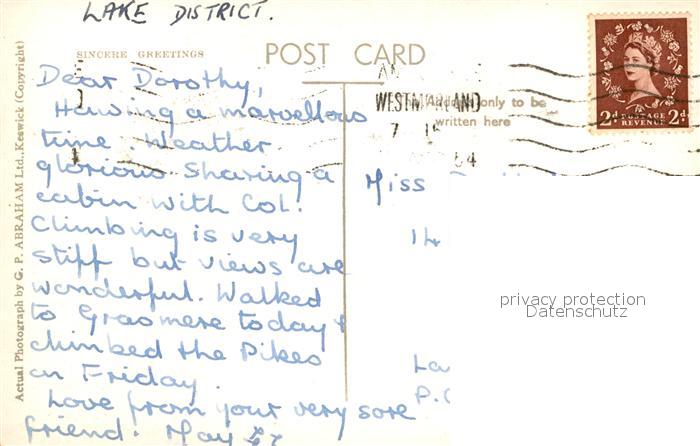 LAKE DISTRICT.
SINCERE GREETINGS
POST CARD
Actual Photograph by G. P. ABRAHAM Ltd., Keswick (Copyright)
Dear Dorothy,
Having a marvellous
time. Weather
glorious Sharing a
cabin with Col.
Climbing is very
stiff but views are
wonderful. Walked
to Grasmere today &
climbed the Pikes
on Friday.
Love from your very sore
friend. May
WESTMORLAND
only to be
written here
7
54
2d POSTAGE 2d
REVENUE
Miss
14
privacy protection
Datenschutz